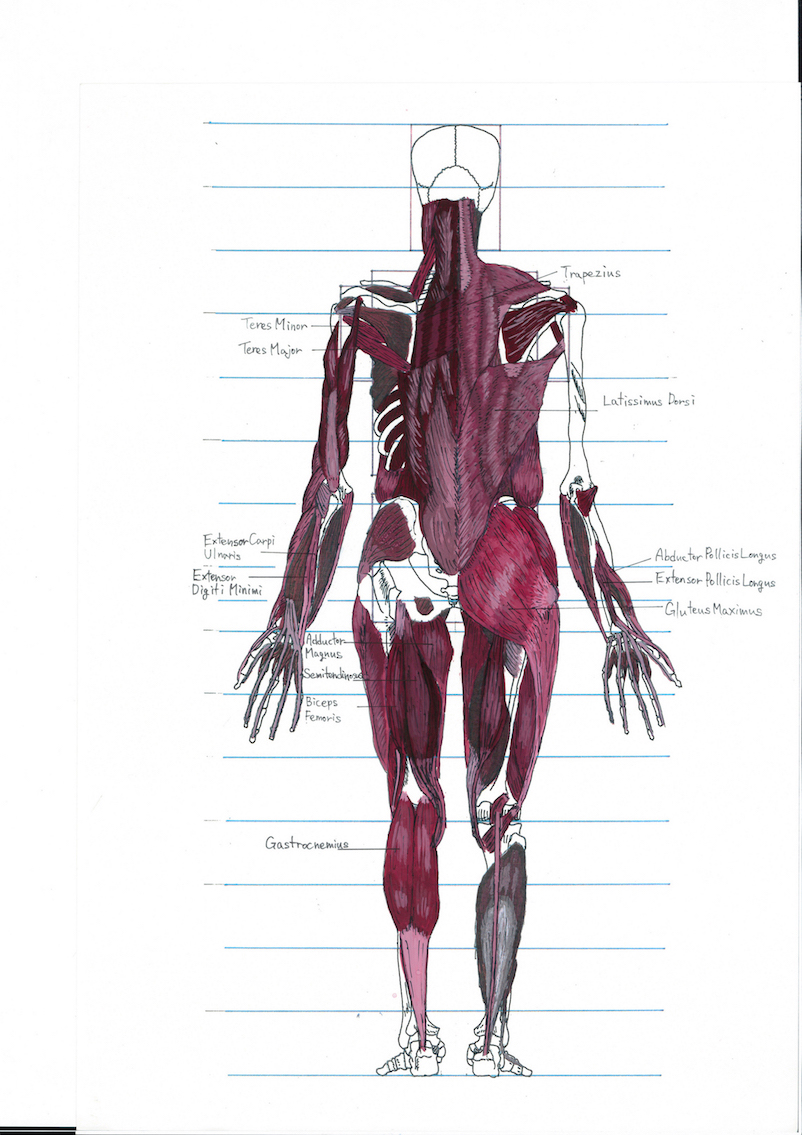 Trapezius
Teres Minor
Teres Major
Latissimus Dorsi
Extensor Carpi
Ulnaris
Extensor
Digiti Minimi
Abductor Pollicis Longus
Extensor Pollicis Longus
Gluteus Maximus
Adductor
Magnus
Semitendinosus
Biceps
Femoris
Gastrocnemius